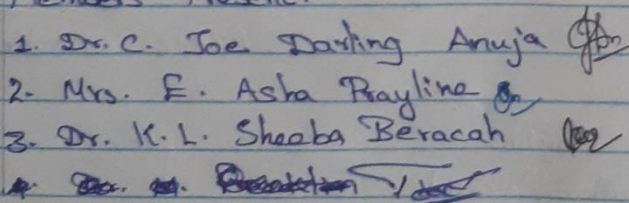 1. Dr. C. Joe Darling Anuja
2. Mrs. E. Asha Prayline
3. Dr. K. L. Sheeba Beracah
4.